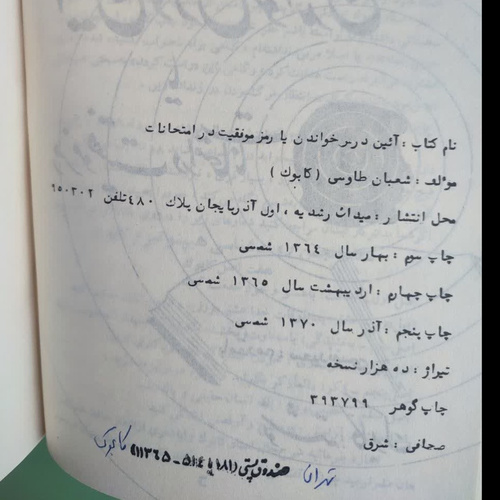 نام کتاب : آئین درس خواندن یا رمز موفقیت در امتحانات
موءلف : شعبان طاوسی ( کابوک )
محل انتشار : میدان رشدیه ، اول آذربایجان پلاک ۴۸۰ تلفن ۶۵۰۳۰۲
چاپ سوم : بهار سال ۱۳۶۴ شمسی
چاپ چهارم : اردیبهشت سال ۱۳۶۵ شمسی
چاپ پنجم : آذر سال ۱۳۷۰ شمسی
تیراژ : ده هزار نسخه
چاپ گوهر ۳۹۳۷۹۹
صحافی : شرق
تهران صندوق پستی (۱۸۱ یا ۵۱۴ - ۱۱۳۶۵) کابوک